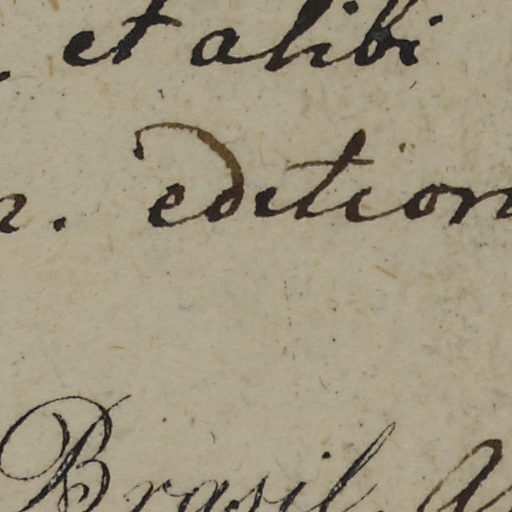 et alibi
. edition
Brasil.